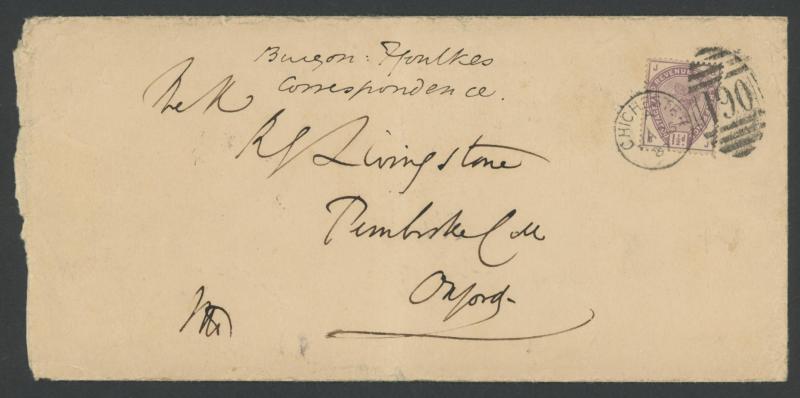 Burgon: Ffoulkes
Correspondence.
The R
RJ Livingstone
Pembroke Coll
Oxford
CHICH
190
REVENUE
J
J